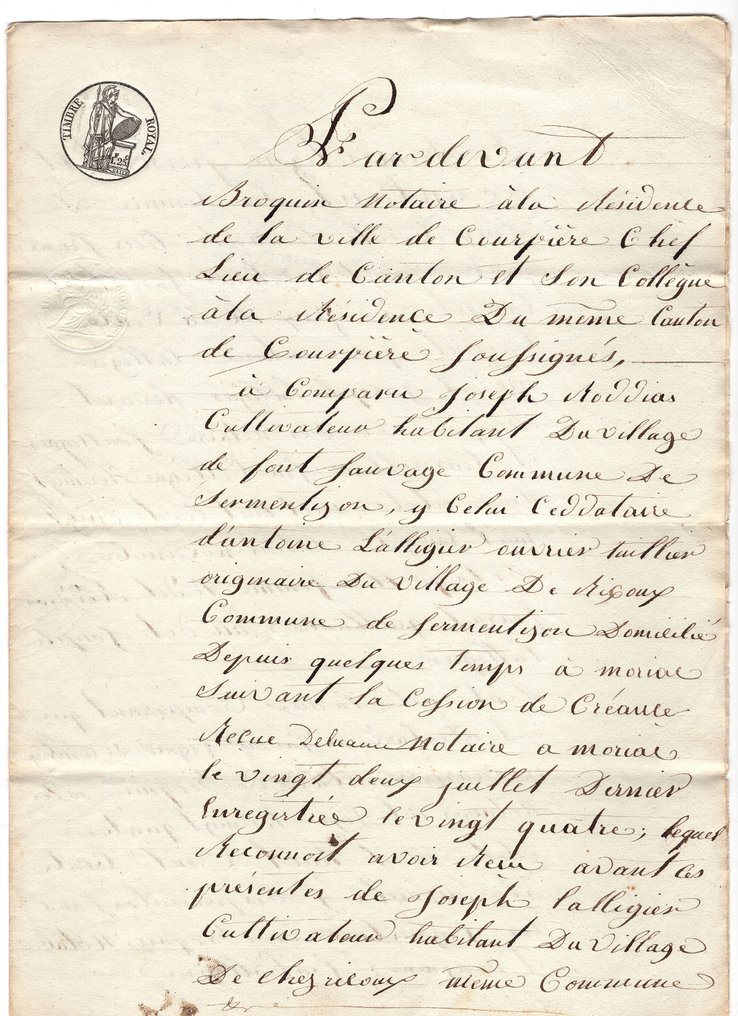 TIMBRE ROYAL
1.25
Pardevant
Broquin Notaire àla Résidence
de la ville de Courpière Chef
Lieu de Canton et Son Collègue
àla Résidence Du même Canton
de Courpière Soussignés,
à Comparu Joseph Roddias
Cultivateur habitant Du village
de font Sauvage Commune De
Sermentizon, y Celui Ceddataire
d'antoine Lalligier ouvrier tuillier
originaire Du Village De Ricoux
Commune de Sermentizon Domicilié
Depuis quelques temps à moriac
Suivant la Cession de Créance
Reçue Notaire a moriac
le vingt deux juillet Dernier
Enregistrée le vingt quatre; lequel
Reconnoit avoir Recu avant ces
présentes de Joseph Lalligier
Cultivateur habitant Du Village
De chezricoux même Commune